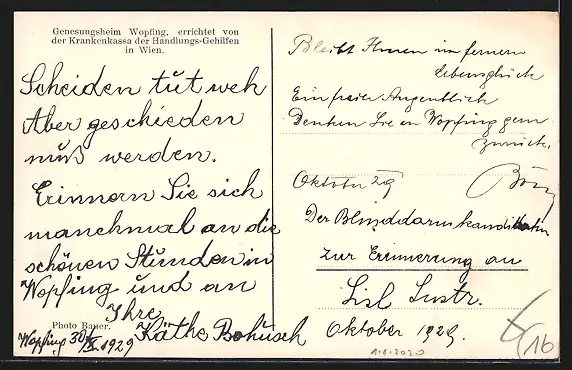 Genesungsheim Wopfing, errichtet von
der Krankenkassa der Handlungs-Gehilfen
in Wien.
Scheiden tut weh
Aber geschieden
muß werden.
Erinnern Sie sich
manchmal an die
schönen Stunden in
Wopfing und an
Ihre
Käthe Bohusch
Photo Bauer.
Wopfing 30/X. 1929
Bleibt Ihnen im fernern
Lebensglück
Ein freier Augenblick
Denken Sie an Wopfing gern
zurück.
Oktober 29
Der Blinddarmkandidatin
zur Erinnerung an
Lisl Lustr.
Oktober 1929.
1.1.2020
16